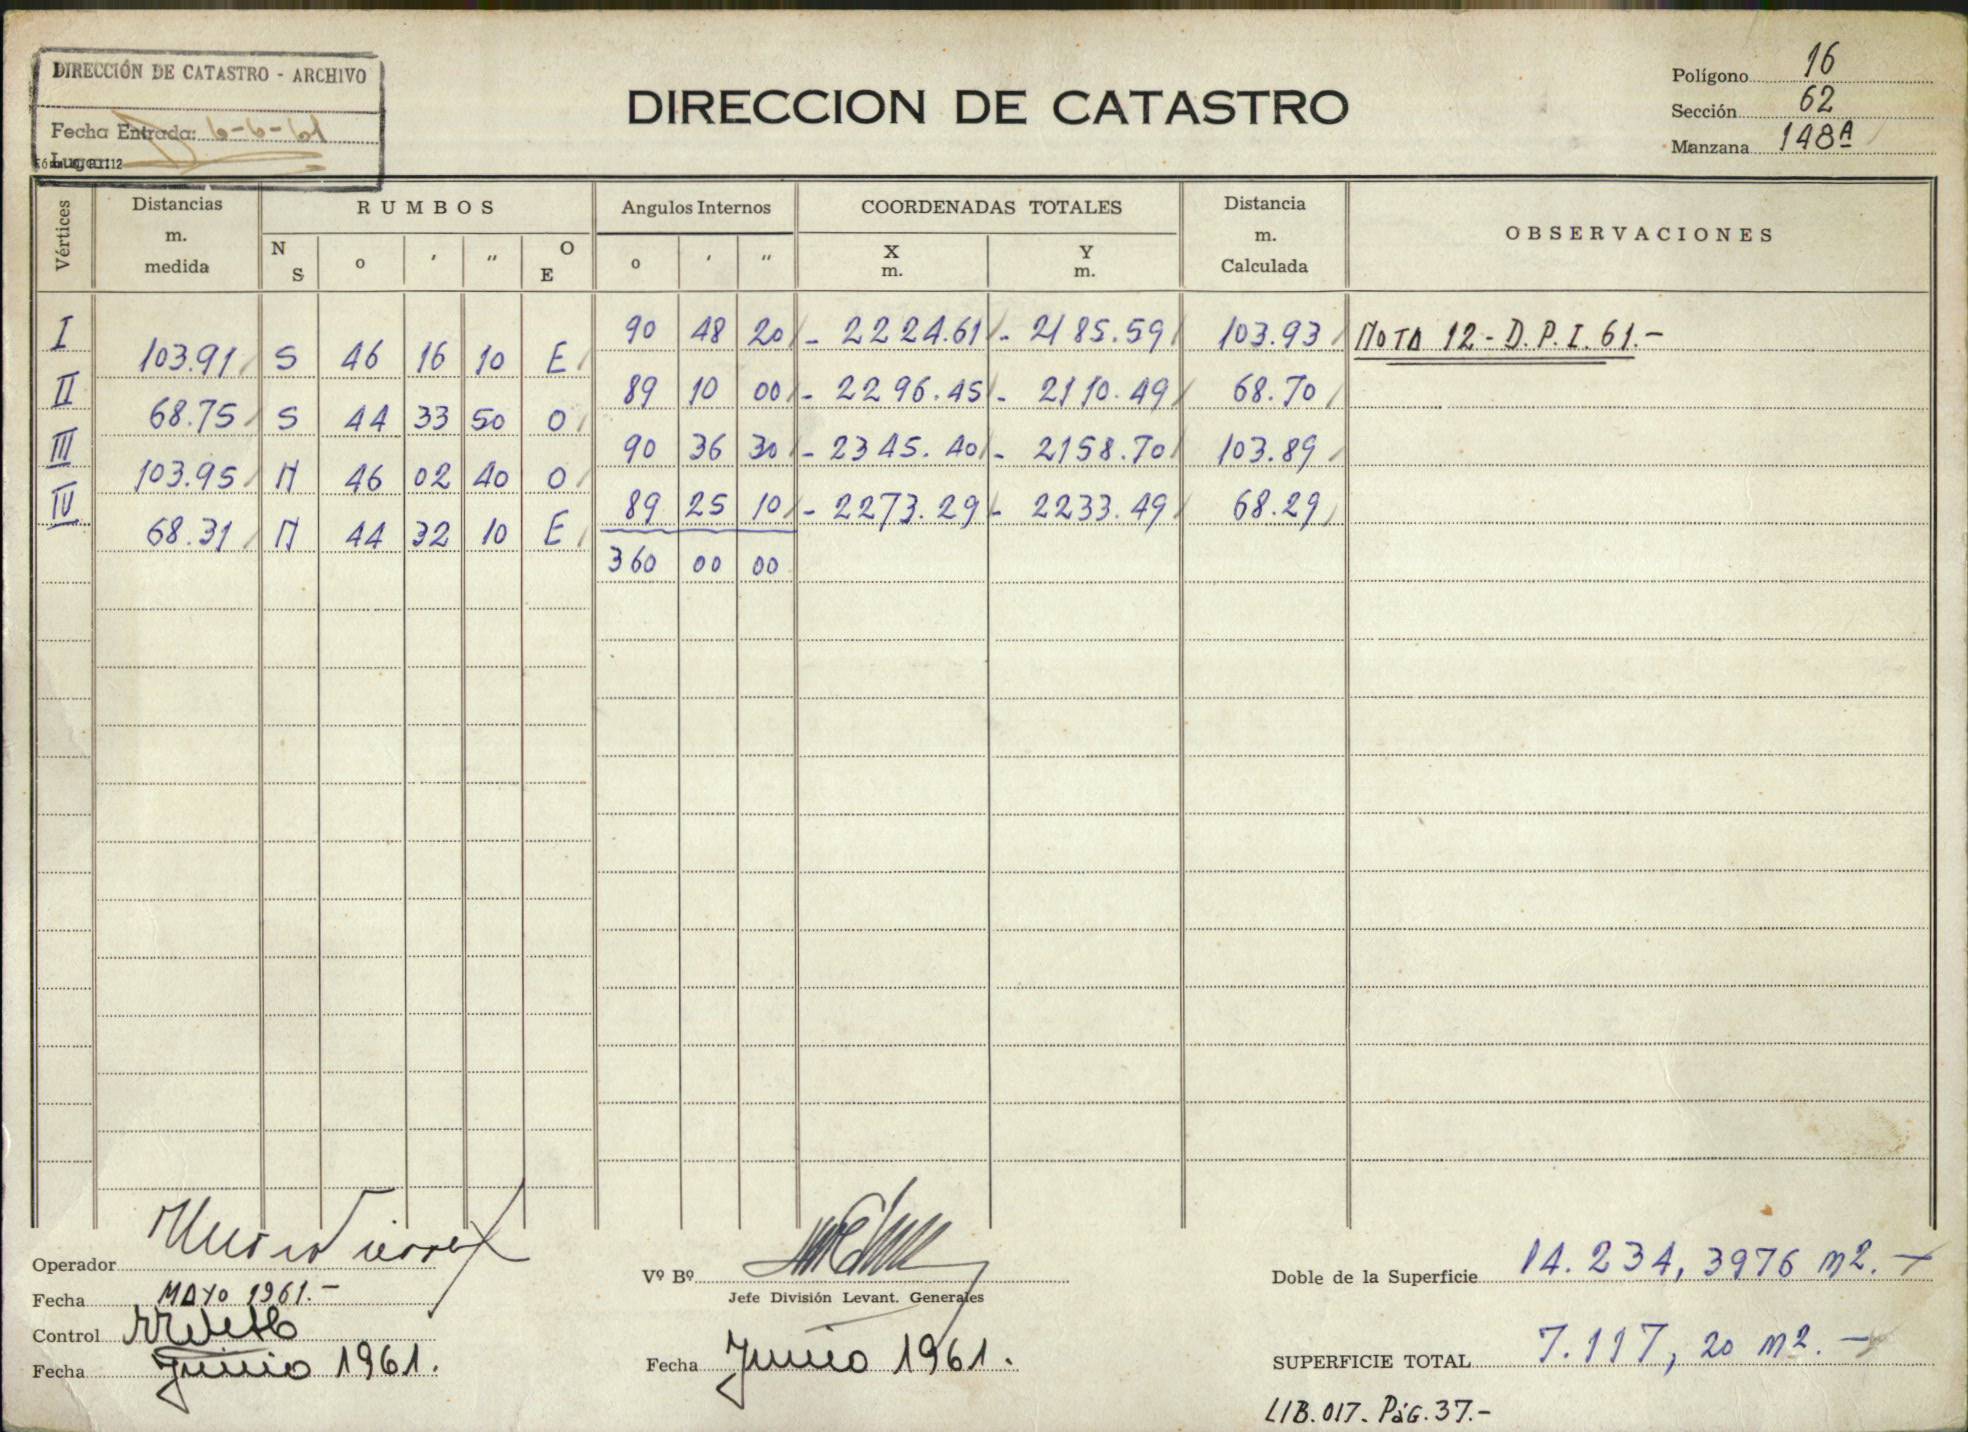 DIRECCIÓN DE CATASTRO - ARCHIVO
Fecha Entrada: 6-6-61
DIRECCION DE CATASTRO
Polígono 16
Sección 62
Manzana 148A
Vértices
Distancias m. medida
RUMBOS
N S o ' " O E
Angulos Internos
o ' "
COORDENADAS TOTALES
X m. Y m.
Distancia m. Calculada
OBSERVACIONES
I 90 48 20 - 2224.61 - 2185.59 103.93 NOTA 12 - D.P.I. 61.-
103.91 S 46 16 10 E
II 89 10 00 - 2296.45 - 2110.49 68.70
68.75 S 44 33 50 O
III 90 36 30 - 2345.40 - 2158.70 103.89
103.95 N 46 02 40 O
IV 89 25 10 - 2273.29 - 2233.49 68.29
68.31 N 44 32 10 E
360 00 00
Operador
Fecha MAYO 1961.-
Control
Fecha Junio 1961.
Vº Bº
Jefe División Levant. Generales
Fecha Junio 1961.
Doble de la Superficie 14.234,3976 m2.-
SUPERFICIE TOTAL 7.117,20 m2.-
LIB. 017. PÁG. 37.-